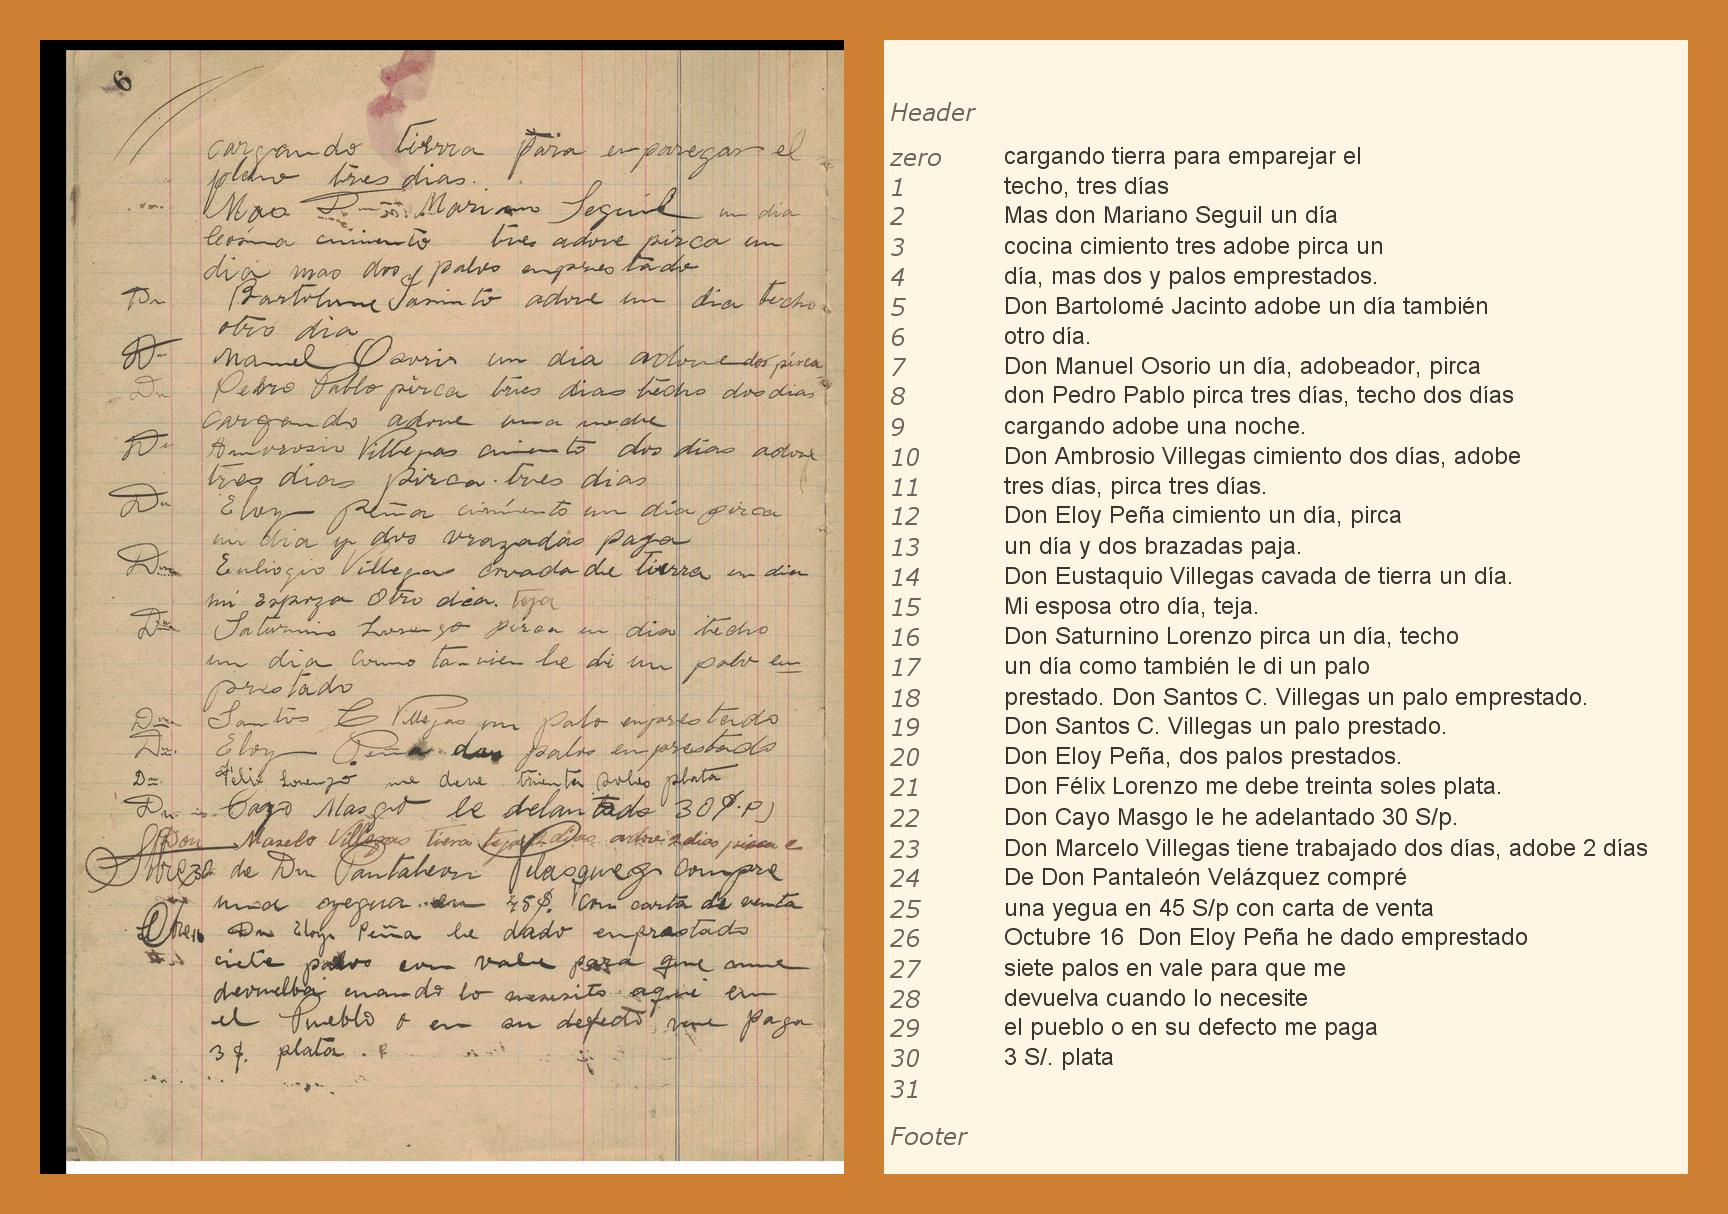 6
cargando tierra para enparegar el
plano tres dias.
Mas Dn Mariano Seguil un dia
cosina cimiento tres adove pirca un
dia mas dos y palos enprestado
Dn Bartolome Jasinto adove un dia techo
otro dia
Dn Manuel Osorio un dia adove dos pirca
Dn Pedro Pablo pirca tres dias techo dos dias
cargando adove una noche
Dn Amvrosio Villegas cimiento dos dias adove
tres dias pirca tres dias
Dn Eloy Peña cimiento un dia pirca
un dia y dos vrazadas paga
Dn Eulogio Villegas cavada de tierra un dia
mi Espoza Otro dia. teja
Dn Saturnino Lorenzo pirca un dia techo
un dia como tanvien le di un palo en
prestado
Dn Santos C Villegas un palo enprestado
Dn Eloy Peña dos palos enprestado
Dn Felix Lorenzo me deve trienta soles plata
Dn Cayo Masgo le delantado 30
Don Maselo Villegas adove 2 dias pirca
de Dn Pantaleon Velasquez compre
una yegua en 45$. Con carta de venta
Dn Eloy Peña he dado enprestado
ciete palos con vale para que me
devuelba cuando lo nesesito aqui en
el Pueblo o en su defecto me paga
3 $. plata.
Header
zero cargando tierra para emparejar el
1 techo, tres días
2 Mas don Mariano Seguil un día
3 cocina cimiento tres adobe pirca un
4 día, mas dos y palos emprestados.
5 Don Bartolomé Jacinto adobe un día también
6 otro día.
7 Don Manuel Osorio un día, adobeador, pirca
8 don Pedro Pablo pirca tres días, techo dos días
9 cargando adobe una noche.
10 Don Ambrosio Villegas cimiento dos días, adobe
11 tres días, pirca tres días.
12 Don Eloy Peña cimiento un día, pirca
13 un día y dos brazadas paja.
14 Don Eustaquio Villegas cavada de tierra un día.
15 Mi esposa otro día, teja.
16 Don Saturnino Lorenzo pirca un día, techo
17 un día como también le di un palo
18 prestado. Don Santos C. Villegas un palo emprestado.
19 Don Santos C. Villegas un palo prestado.
20 Don Eloy Peña, dos palos prestados.
21 Don Félix Lorenzo me debe treinta soles plata.
22 Don Cayo Masgo le he adelantado 30 S/p.
23 Don Marcelo Villegas tiene trabajado dos días, adobe 2 días
24 De Don Pantaleón Velázquez compré
25 una yegua en 45 S/p con carta de venta
26 Octubre 16 Don Eloy Peña he dado emprestado
27 siete palos en vale para que me
28 devuelva cuando lo necesite
29 el pueblo o en su defecto me paga
30 3 S/. plata
31
Footer